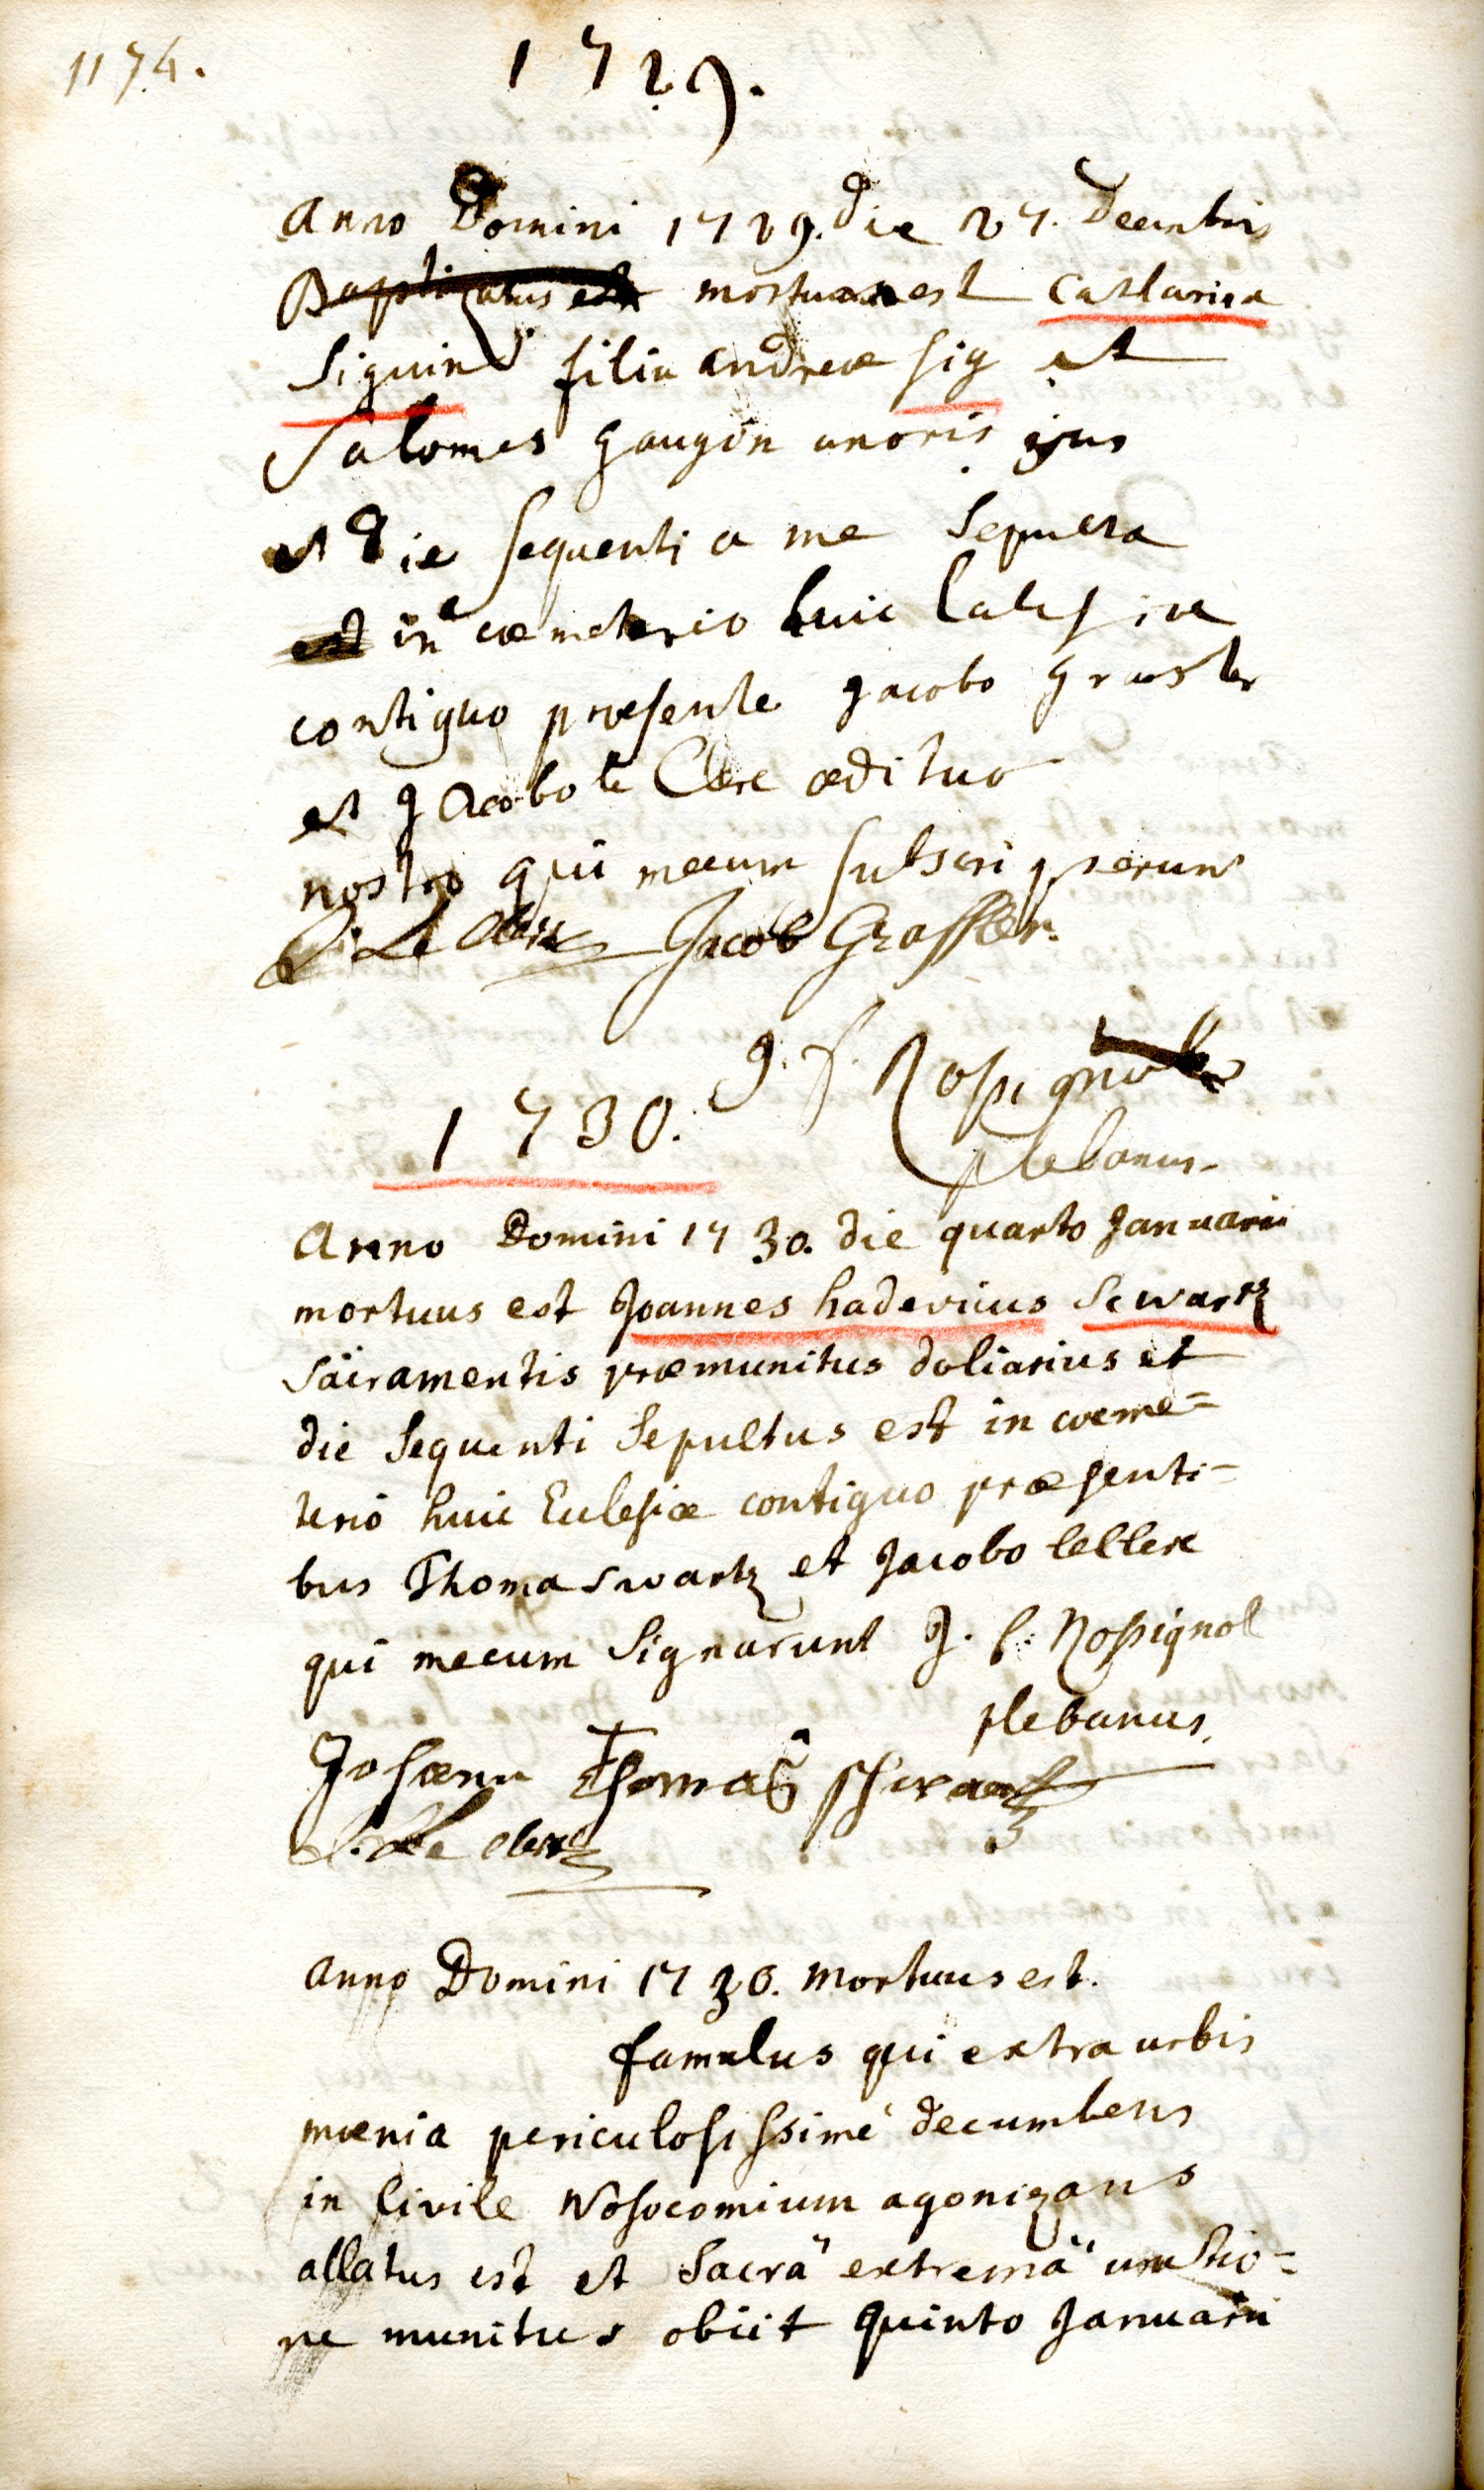 1174.
1729.
Anno Domini 1729. die 27. Decembris
Baptizatus est mortua est Catharina
Siguin filia andreæ sig et
Salomes gaugin uxoris ejus
et die sequenti a me sepulta
est in cœmeterio huic Eclesiæ
contiguo præsente Jacobo graster
et Jacobo le Clere ædituo
nostro qui mecum subscripserunt
Le Clerc Jacob Graffter.
J. f. Rossignol
plebanus
1730.
Anno Domini 1730. die quarto Januarii
mortuus est Joannes hadevicus Scwartz
Sacramentis præmunitus doliarius et
die sequenti Sepultus est in cœme=
terio huic Eclesiæ contiguo præsenti=
bus Thoma Swartz et Jacobo leclere
qui mecum Signarunt J. f. Rossignol
plebanus.
Johann Thomaß schwartz
Le Clerc
Anno Domini 1730. mortuus est.
famulus qui extra urbis
mœnia periculosissimè decumbens
in Civile Nosocomium agonizans
allatus est et Sacrâ extremâ unctio=
ne munitus obiit quinto Januarii